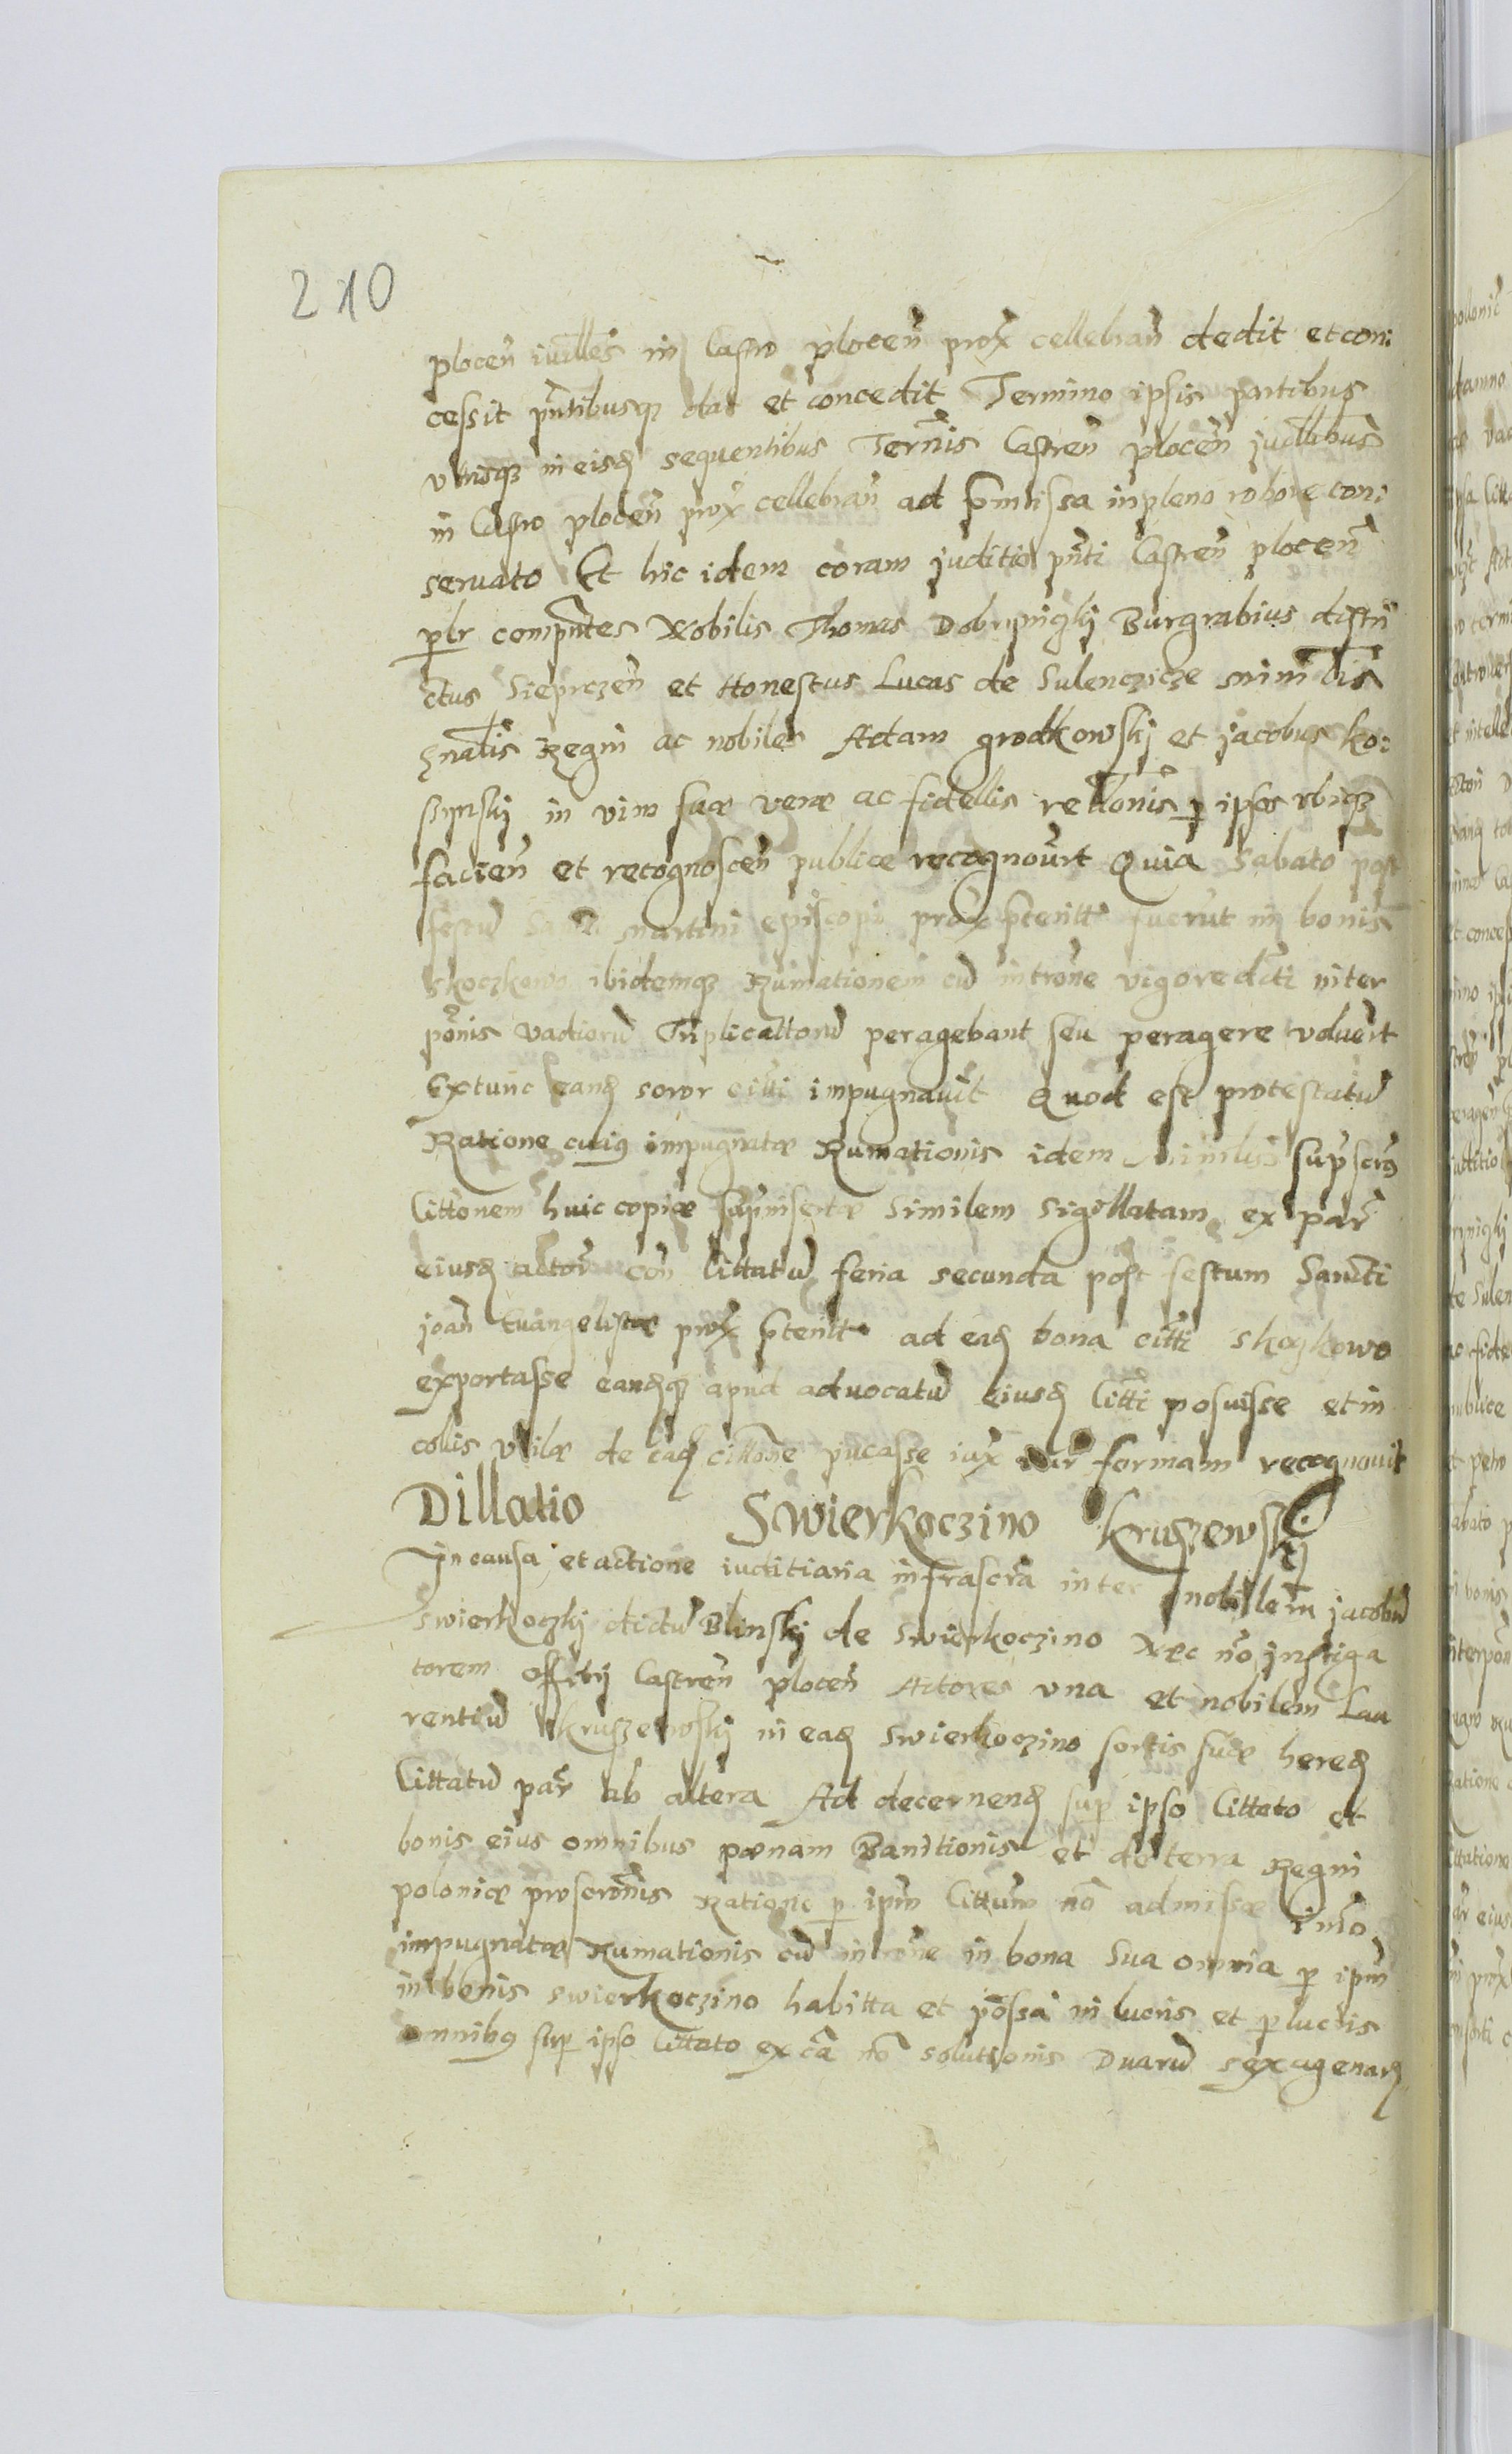 210
plocen̄ iudlles in Castro plocen̄ prox̄ cellebran̄ dedit et con:
cessit pn̄tibusq̨ dat et concedit Termino ipsis partibus
vtrisq̨ in eisđ sequentibus Termīs Castren̄ plocen̄ judllibus
in Castro plocen̄ prox̄ cellebran̄ ad p̄missa in pleno robore con:
seruato Et hic idem coram juditio pn̄ti Castren̄ plocen̄
p̱lr compn̄tes Nobilis Thomas Dobrpnigkj Burgrabius distri
ctus Sieprczen̄ et Honestus Lucas de Sulenczicze minr̄lis
gn̄alis Regni ac nobiles Adam grodkowskj et jacobus ko:
in vim suæ veræ ac fidellis rell̄onis p̱ ipsos vbiq̨
facien̄ et recognoscen̄ publice recognouer̄t Quia Sabato post
festū Sancti martini episcopi prox p̄teritt fuerūt in bonis
skoczkowo ibidemq̨ Rumationem cū intron̄e vigore dicti inter
pōnis vadiorū Triplicattorū peragebant seu peragere volueīt
Extunc eanđ soror citti impugnauīt Quod est protestatū
Ratione cuiꝯ impugnatæ Rumationis idem minrlis supscrꝯ
Citt̄onem huic copiæ supinsertæ similem sigillatam ex par̄
eiusđ actor̄ con̄ Cittatū feria secunda post festum Sancti
joan̄ Euangelistæ prox̄ p̄teritt ad eađ bona citti skoczkowo
exportasse eanđq̨ apud aduocatū eiusđ Citti posuisse et in
colis villæ de eađ citt̄one p̄ucasse iux̄ iur̄ formam recognouit
Dillatio Swierkoczino kruszewskj
In causa et actione iuditiaria infrascr̄a inter nobillem̄ jacobū
Swierkoczkj dictū Blinskj de Swierkoczino Nec nō jnstiga
torem Offitij Castren̄ plocen̄ Actores vna et nobilem Lau
rentiū kruszewskj in eađ Swierkoczino sortis suæ heređ
Cittatū par̄ ab altera Ad decernenđ sup̱ ipso Cittato et
bonis eius omnibus pœnam Banitionis et de terra Regni
poloniæ proscrōnis Ratione p̱ ipm̄ Cittum̄ nō admissæ im̄o
impugnatæ Rumationis cū intron̄e in bona Sua omnia p̱ ipm̄
in bonis swierkoczino habitta et pōssa in lucris et p̱lucris
omnibꝯ sup̱ ipso Cittato ex cā nō solutionis Duarū sexagenarđ